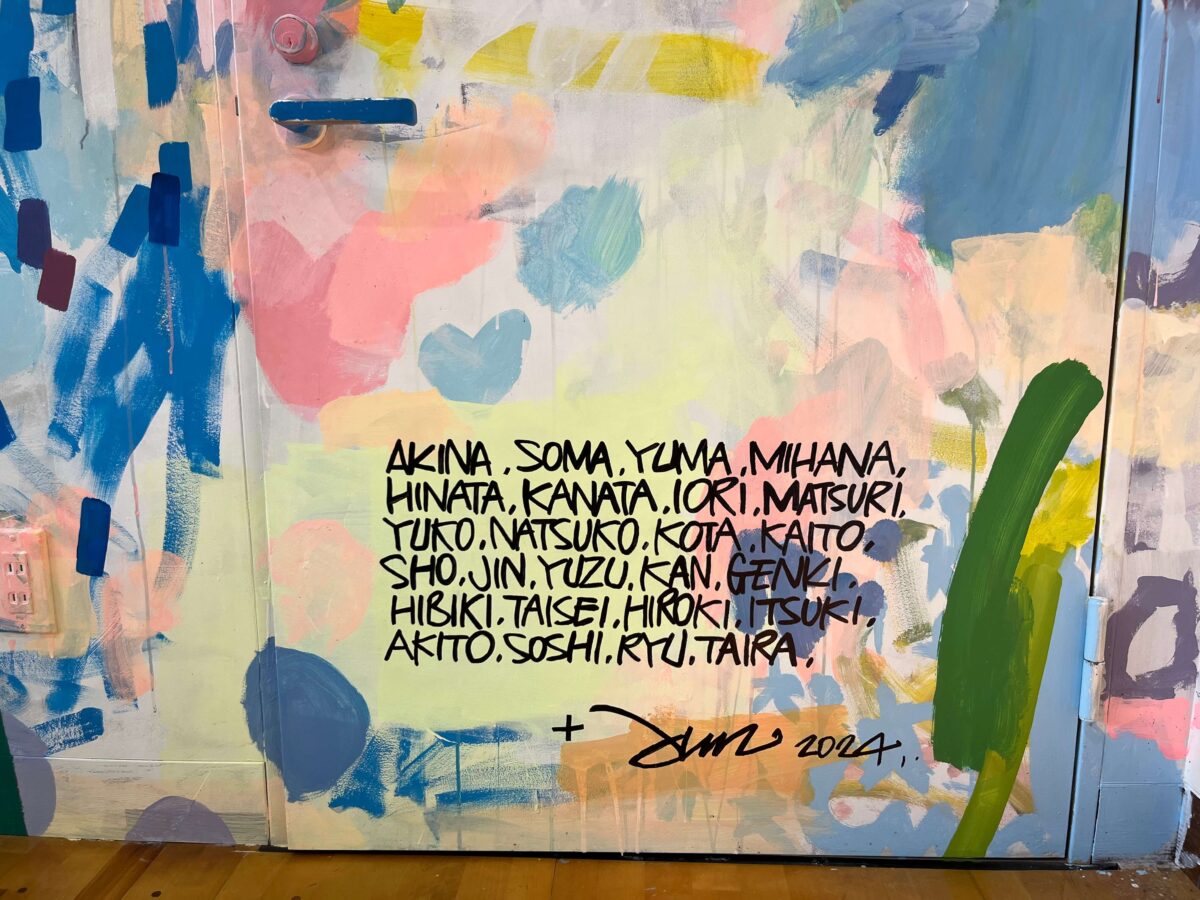 AKINA, SOMA, YUMA, MIHANA,
HINATA, KANATA, IORI, MATSURI,
YUKO, NATSUKO, KOTA, KAITO,
SHO, JIN, YUZU, KAN, GENKI,
HIBIKI, TAISEI, HIROKI, ITSUKI,
AKITO, SOSHI, RYU, TAIRA,
+ 2024,.